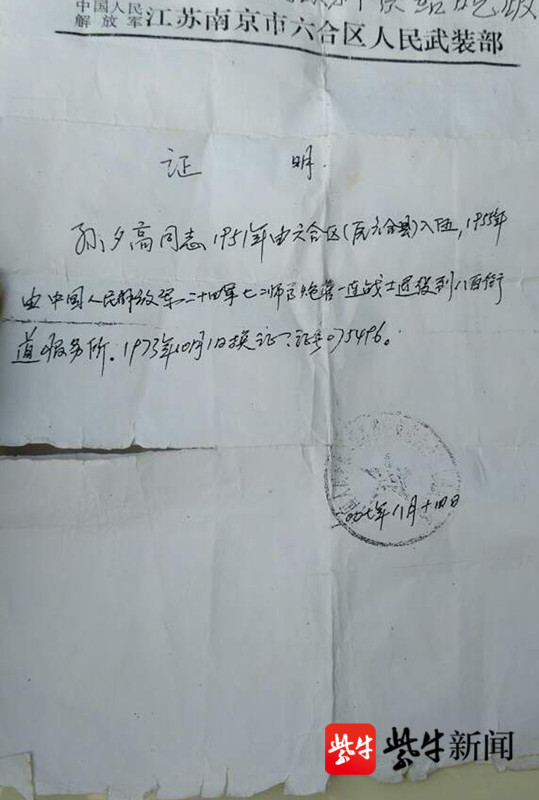 中国人民
解放军 江苏南京市六合区人民武装部
证 明
孙夕高同志1951年由六合区(原六合县)入伍,1955年
由中国人民解放军二十四军七二师炮营一连战士退役到八百街
道服务所。1973年10月1日换证,证号075496。
二00七年八月十四日
紫牛 紫牛新闻